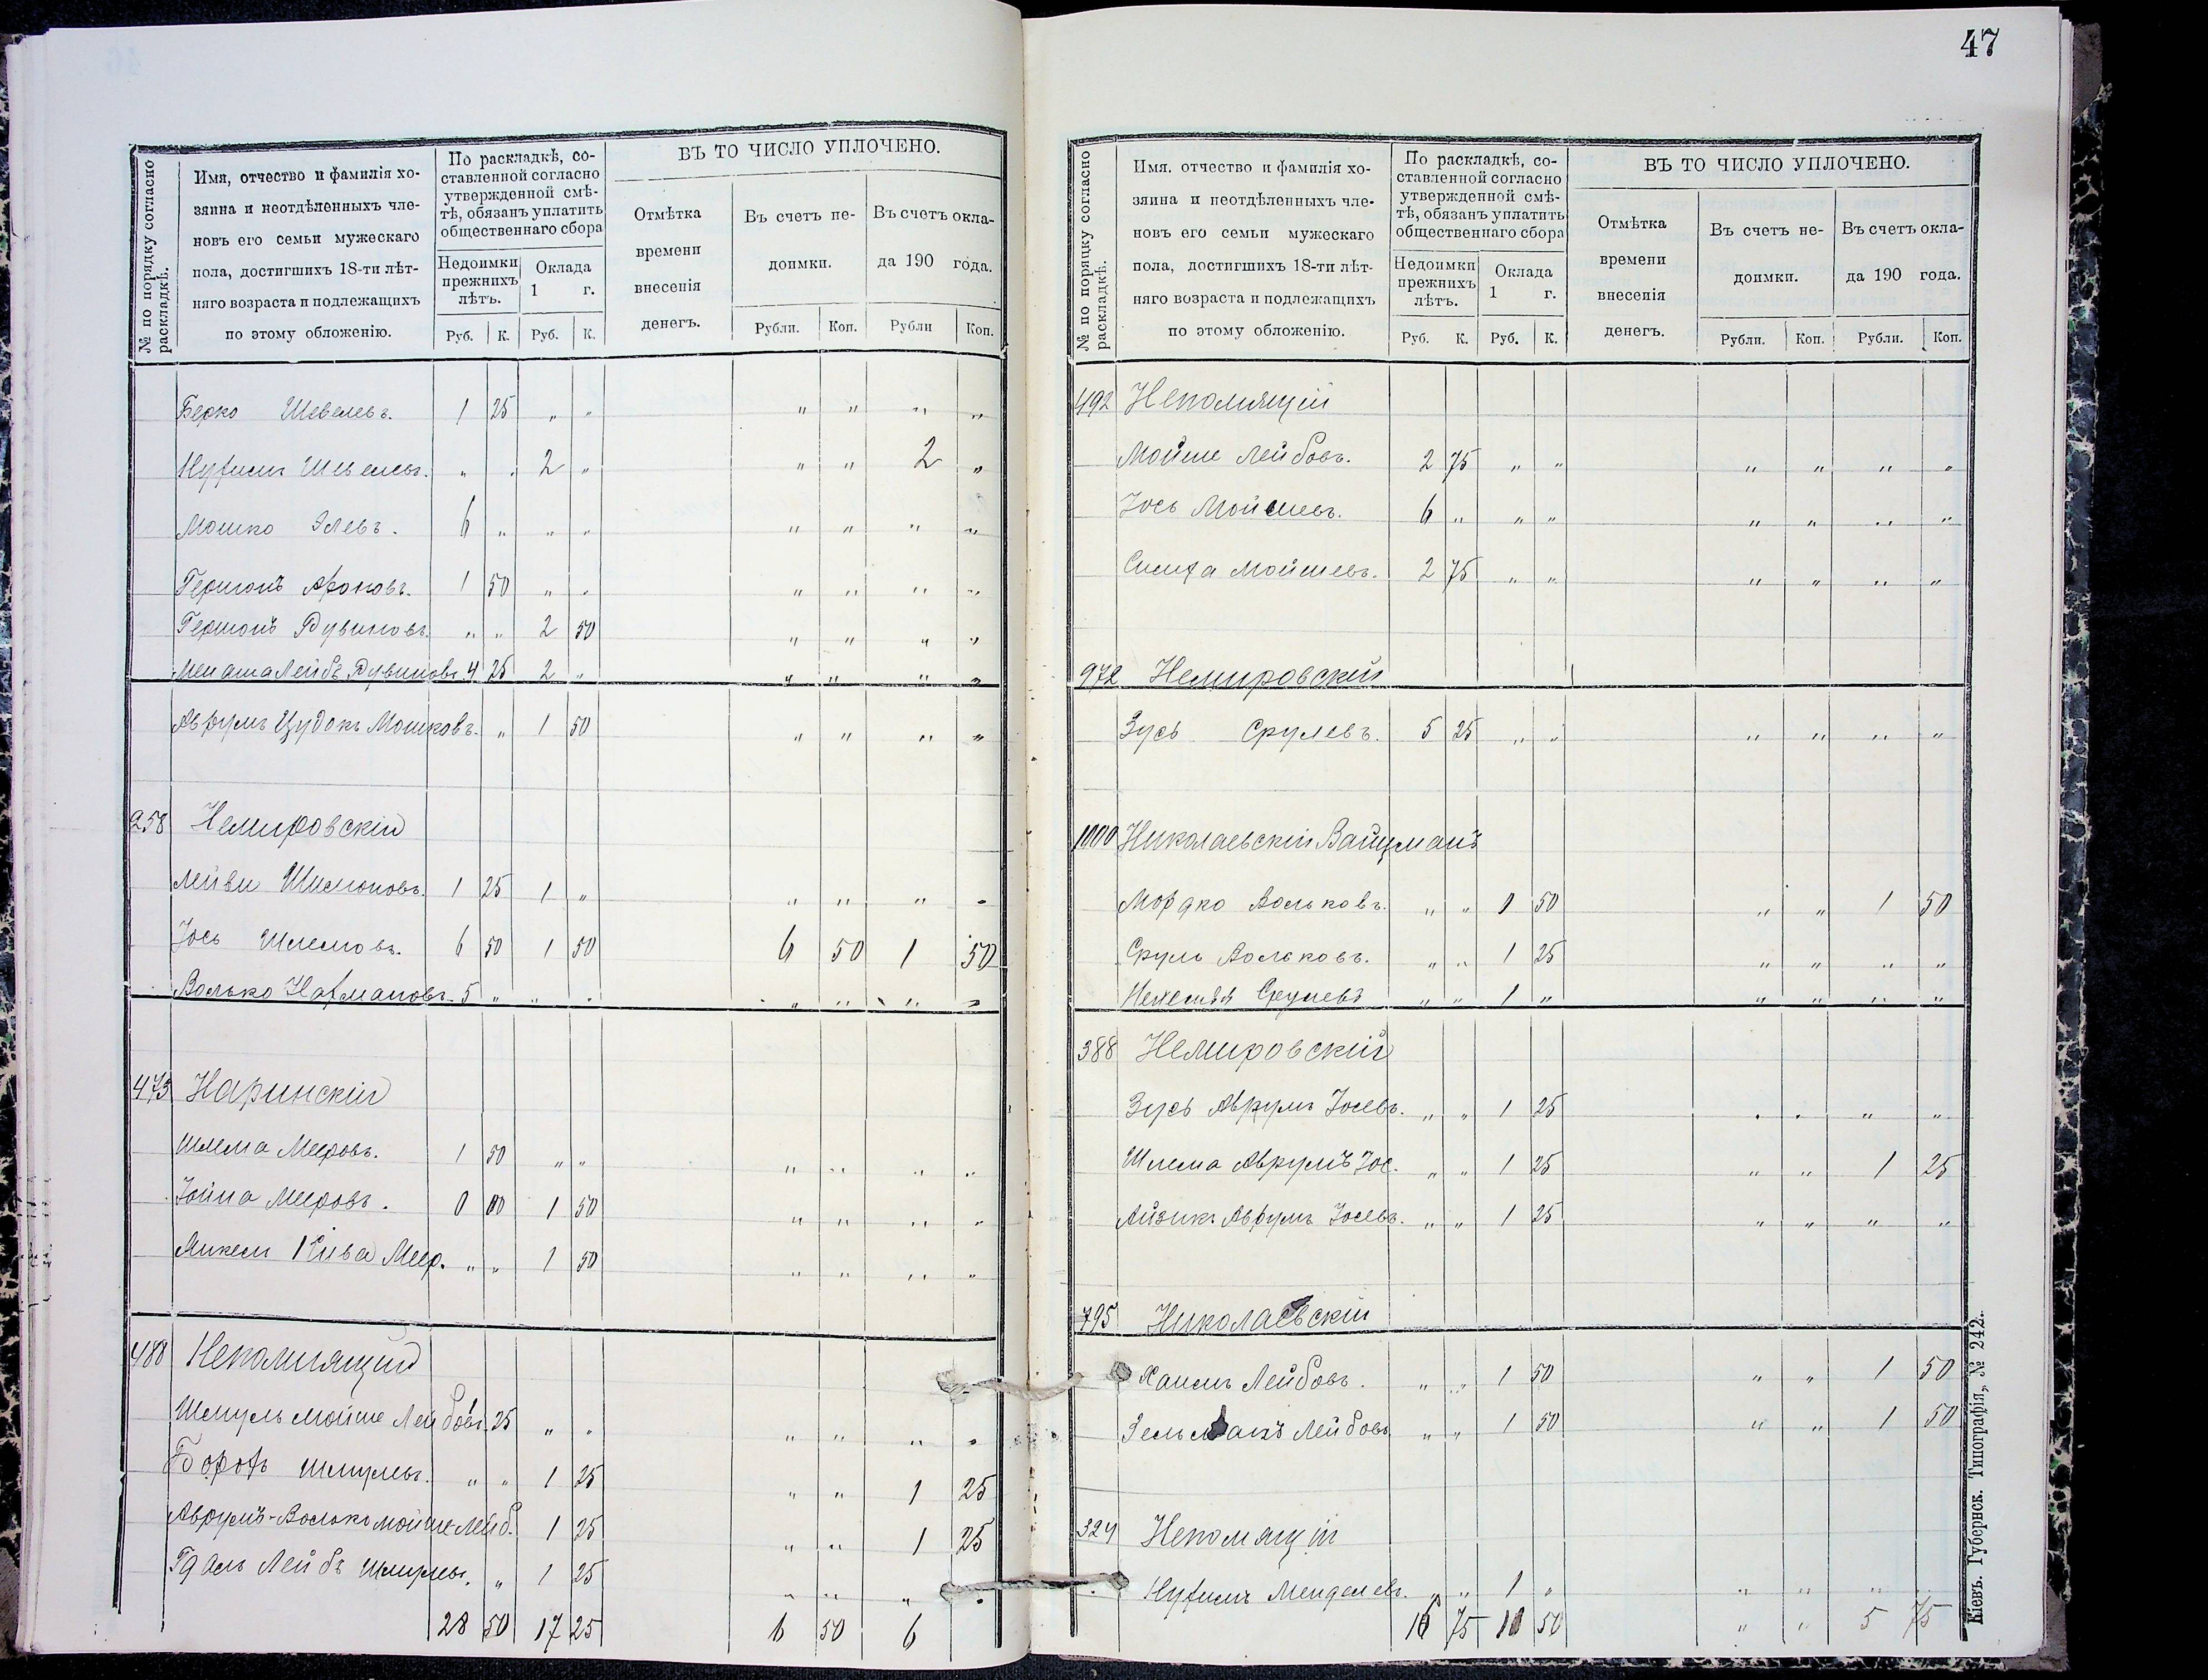 47
№ по порядку согласно раскладкѣ.
Имя, отчество и фамилія хо-
зяина и неотдѣленныхъ чле-
новъ его семьи мужескаго
пола, достигшихъ 18-ти лѣт-
няго возраста и подлежащихъ
по этому обложенію.
По раскладкѣ, со-
ставленной согласно
утвержденной смѣ-
тѣ, обязанъ уплатить
общественнаго сбора
Недоимки прежнихъ лѣтъ.
Оклада 1 г.
Руб. К. Руб. К.
ВЪ ТО ЧИСЛО УПЛОЧЕНО.
Отмѣтка
времени
внесенія
денегъ.
Въ счетъ не-
доимки.
Въ счетъ окла-
да 190 года.
Рубли. Коп. Рубли Коп.
Берко Шевелевъ. 1 25 " " " " " "
Нухимъ Шевелевъ. " " 2 " " " 2 "
Мошко Элевъ. 6 " " " " " " "
Гершонъ Ароновъ. 1 50 " " " " " "
Гершонъ Рувиновъ. " " 2 50 " " " "
Менаша Лейбъ Рувиновъ 4 25 2 " " " " "
Аврумъ Цудокъ Мошковъ. " 1 50 " " " "
258 Немировскій
Лейви Шимоновъ. 1 25 1 " " " " "
Іось Шлемовъ. 6 50 1 50 6 50 1 50
Волько Нахмановъ. 5 " " " " " " "
473 Наринскій
Шлема Мееровъ. 1 50 " " " " " "
Іойна Мееровъ. 0 00 1 50 " " " "
Янкель Кива Меер. " " 1 50 " " " "
488 Непомнящій
Шмуль Мойше Лейбовъ. 1 25 " " " " " "
Борохъ Шмулевъ. " " 1 25 " " 1 25
Аврумъ-Волько Мойше Лейб. 1 25 " " 1 25
Гдаль Лейбъ Шмулевъ. " 1 25 " " " "
28 50 17 25 6 50 6
№ по порядку согласно раскладкѣ.
Имя. отчество и фамилія хо-
зяина и неотдѣленныхъ чле-
новъ его семьи мужескаго
пола, достигшихъ 18-ти лѣт-
няго возраста и подлежащихъ
по этому обложенію.
По раскладкѣ, со-
ставленной согласно
утвержденной смѣ-
тѣ, обязанъ уплатить
общественнаго сбора
Недоимки прежнихъ лѣтъ.
Оклада 1 г.
Руб. К. Руб. К.
ВЪ ТО ЧИСЛО УПЛОЧЕНО.
Отмѣтка
времени
внесенія
денегъ.
Въ счетъ не-
доимки.
Въ счетъ окла-
да 190 года.
Рубли. Коп. Рубли. Коп.
492 Непомнящій
Мойше Лейбовъ. 2 75 " " " " " "
Іось Мойшевъ. 6 " " " " " " "
Симха Мойшевъ. 2 75 " " " " " "
972 Немировскій
Зусь Срулевъ. 5 25 " " " " " "
1000 Николаевскій Вайцманъ
Мордко Вольковъ. " " 1 50 " " 1 50
Сруль Вольковъ. " " 1 25 " " " "
Срулевъ " " 1 " " " " "
388 Немировскій
Зусь Аврумъ Іосевъ. " " 1 25 " " " "
Шлема Аврумъ Іос. " " 1 25 " " 1 25
Айзикъ Аврумъ Іосевъ. " " 1 25 " " " "
795 Николаевскій
Хаимъ Лейбовъ. " " 1 50 " " 1 50
Зельманъ Лейбовъ " " 1 50 " " 1 50
324 Непомнящій
Нухимъ Менделевъ. " " 1 " " " " "
16 75 10 50 " " 5 75
Кіевъ. Губернск. Типографія„ № 242.